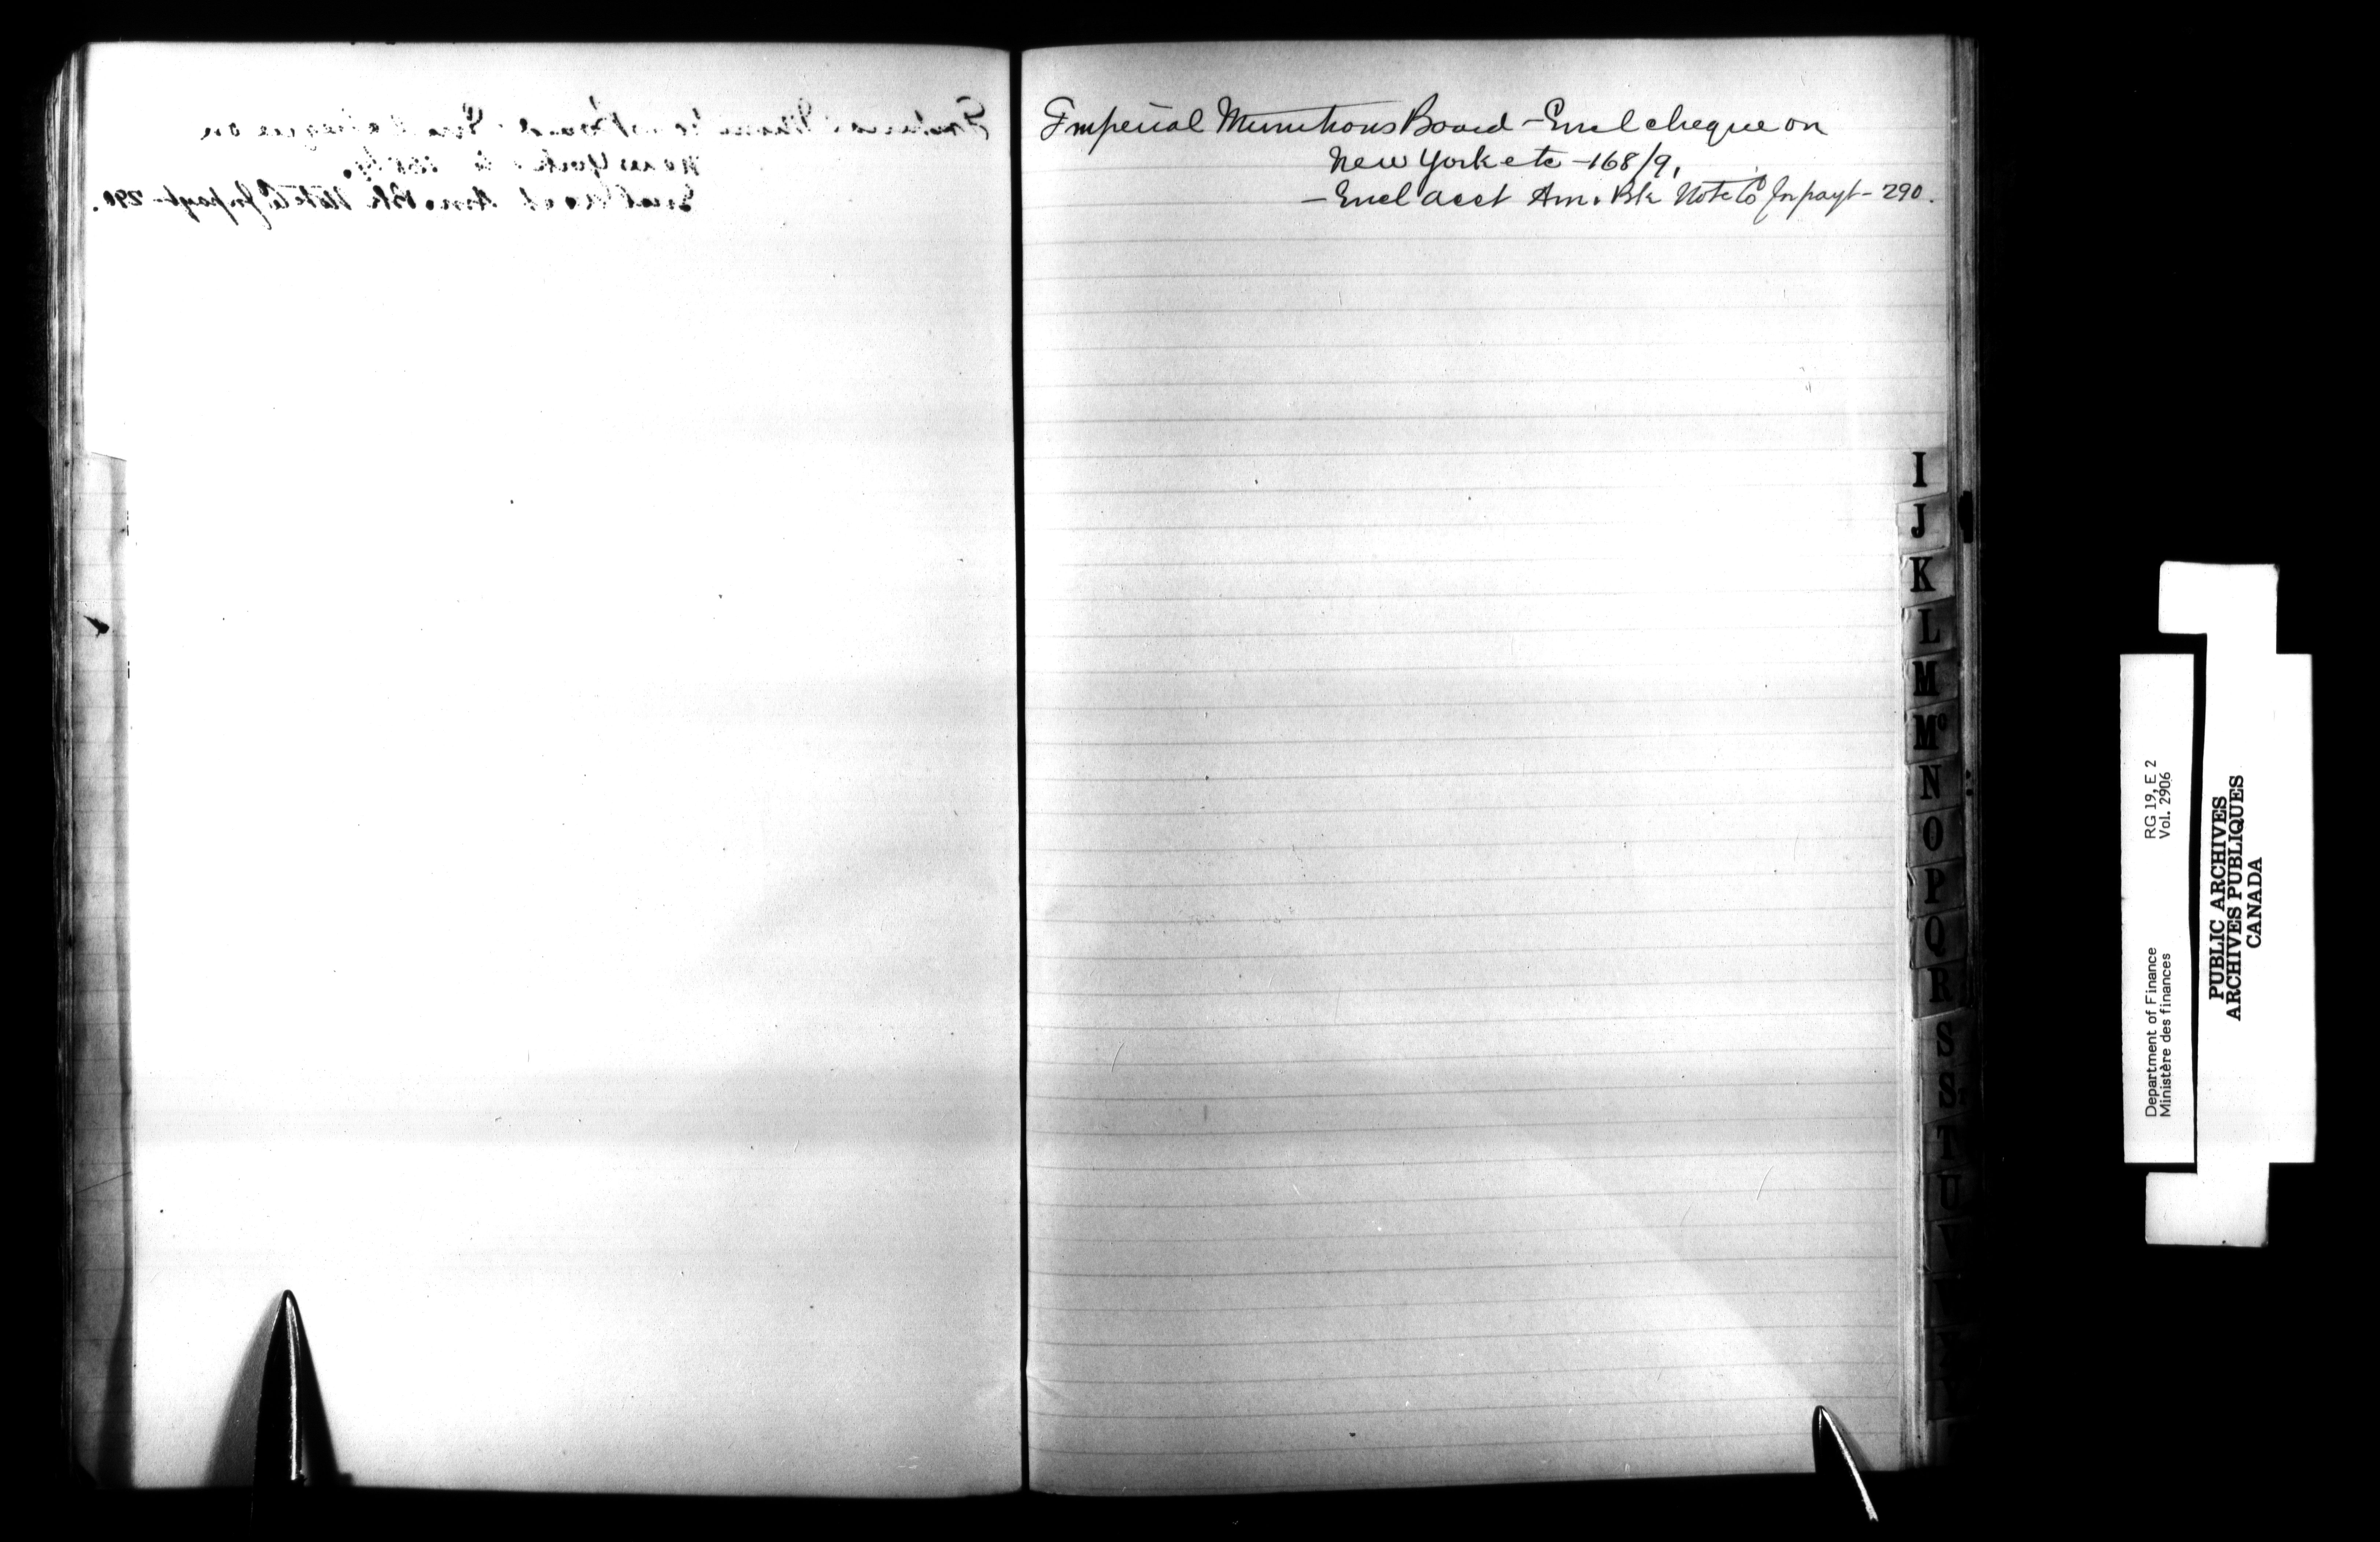 Imperial Munitions Board - Encl cheque on
New York etc - 168/9,
- Encl acct Am. Bk Note Co In payt - 290.
I
J
K
L
M
Mc
N
O
P
Q
R
S
S
T
U
V
Department of Finance RG 19, E 2
Ministère des finances Vol. 2906
PUBLIC ARCHIVES
ARCHIVES PUBLIQUES
CANADA